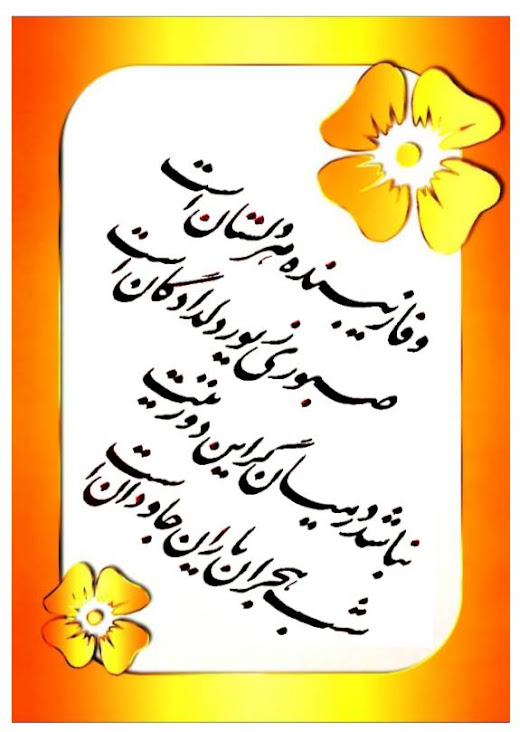 وفا زیبنده هر دلستان است
صبوری زیور دلدادگان است
نباشد در میان گر این دو زینت
شب هجران یاران جاودان است